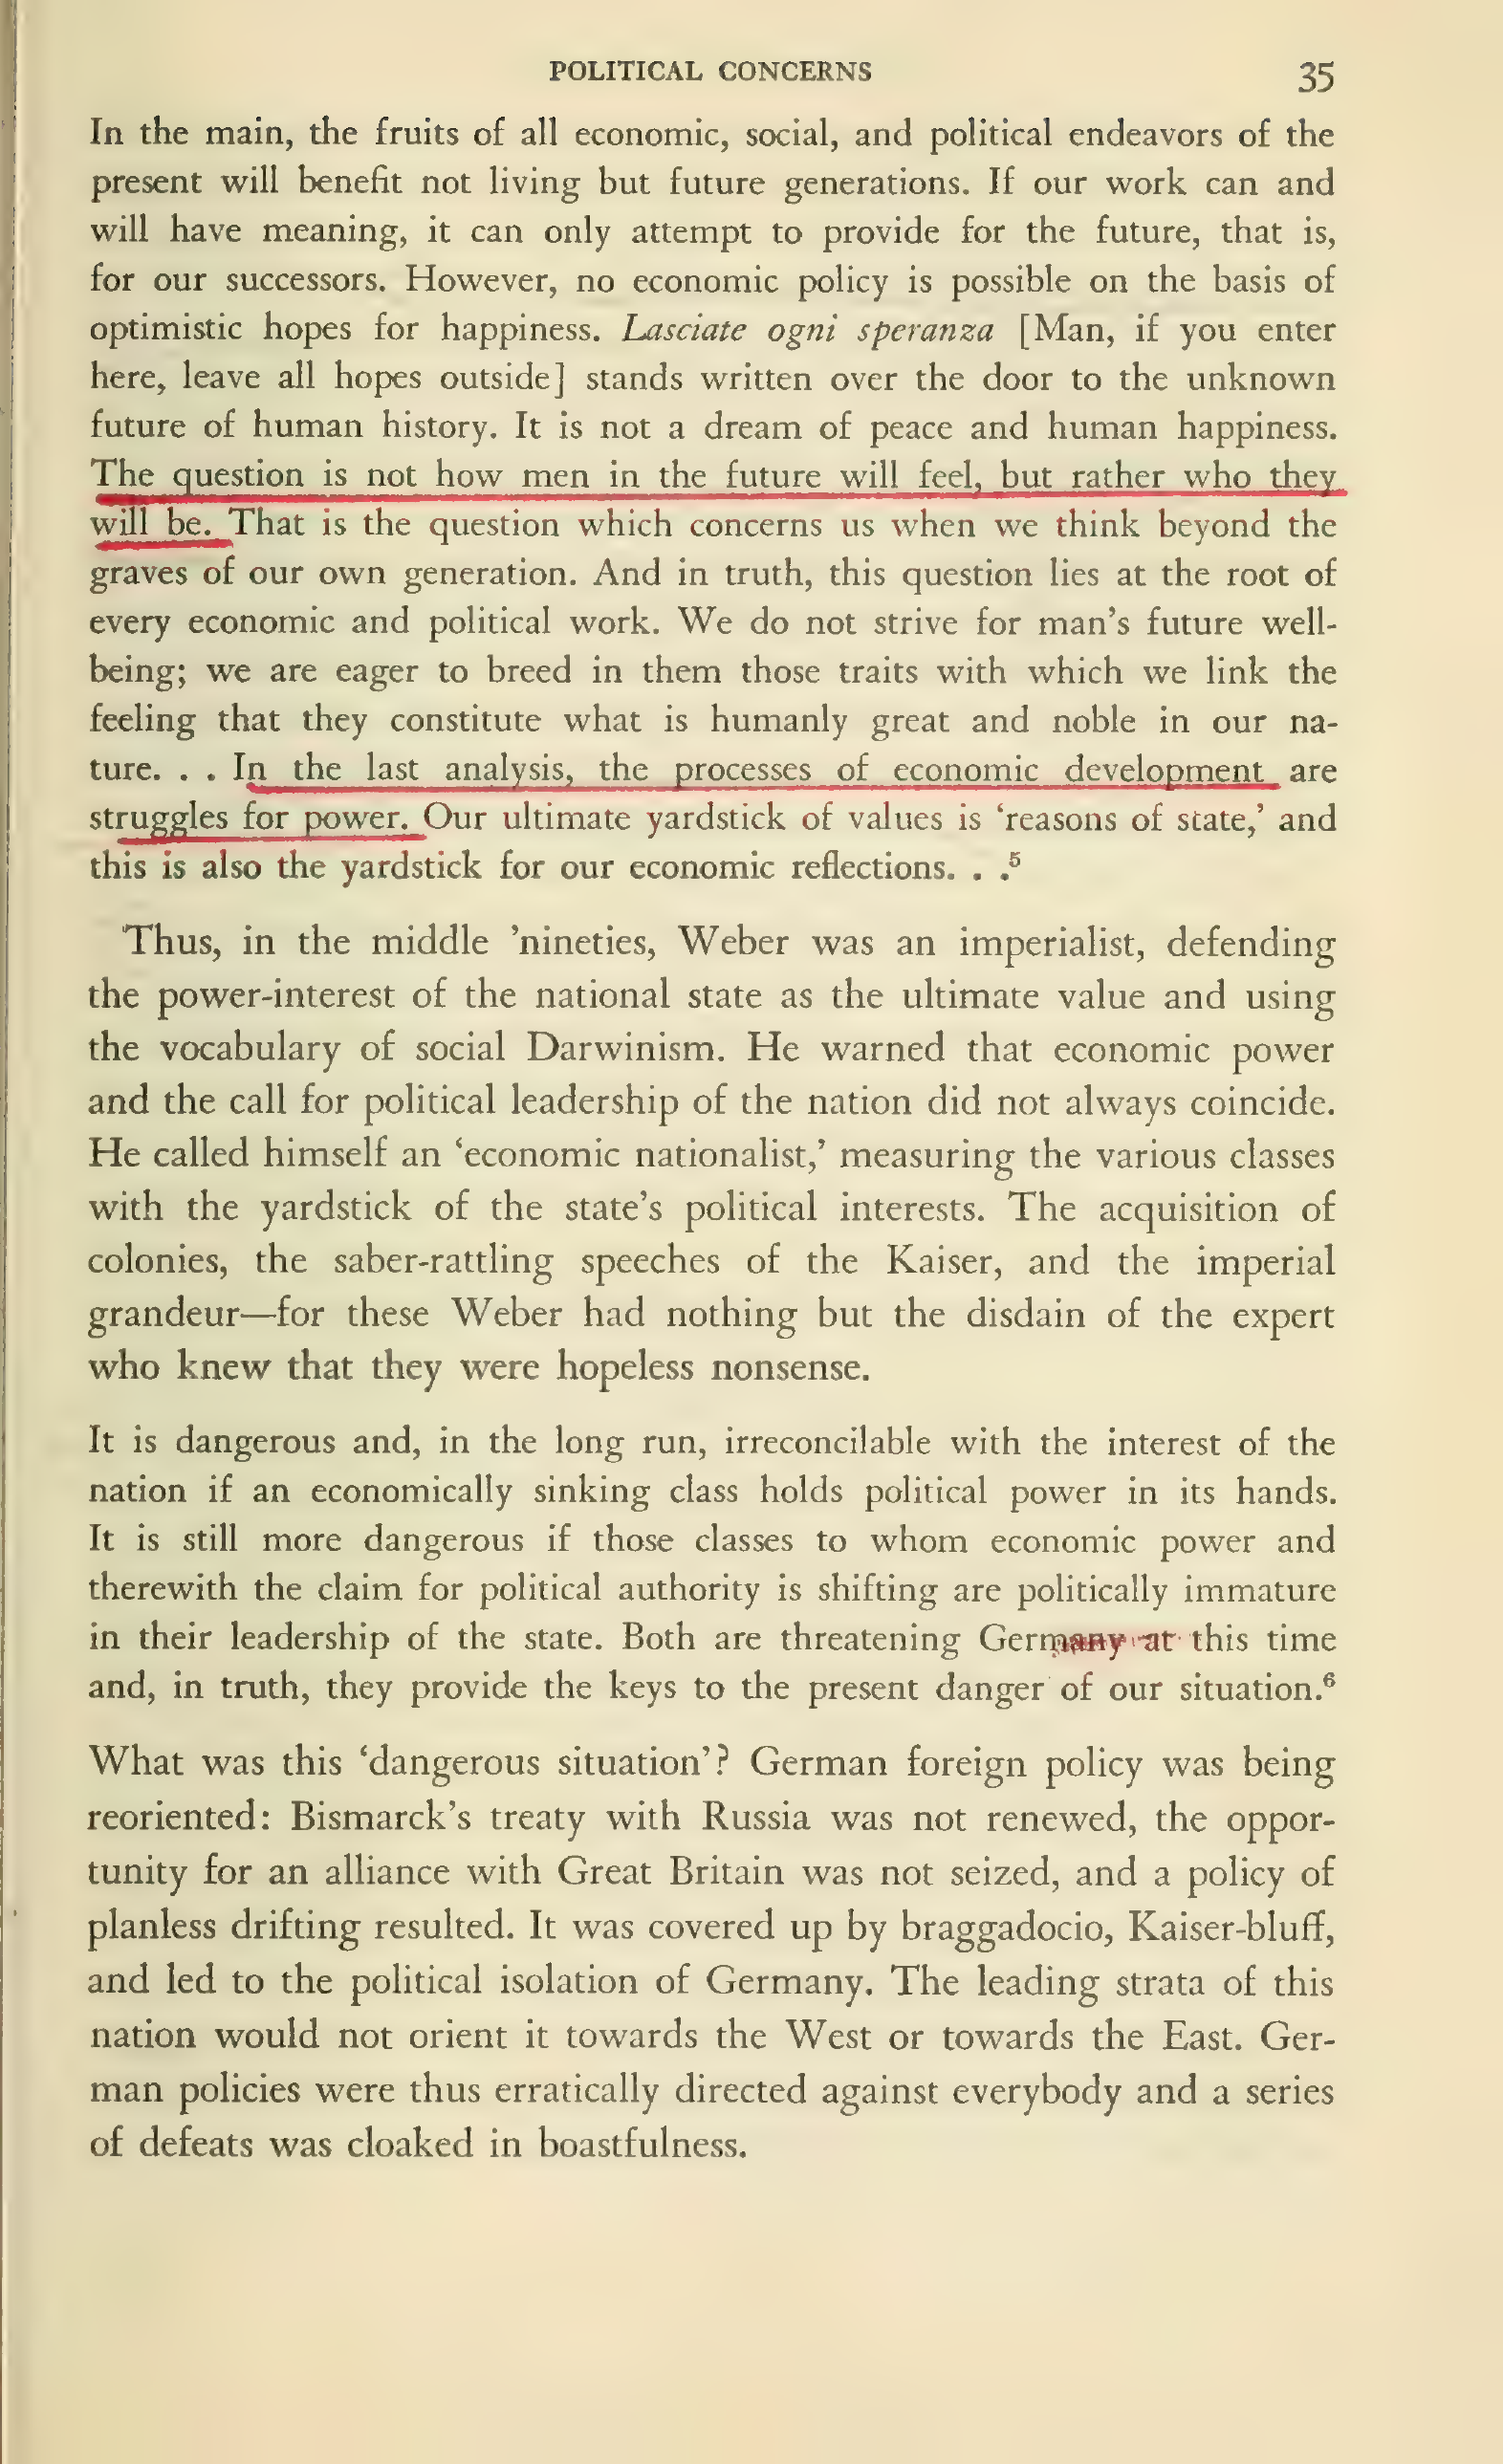 POLITICAL CONCERNS 35
In the main, the fruits of all economic, social, and political endeavors of the
present will benefit not living but future generations. If our work can and
will have meaning, it can only attempt to provide for the future, that is,
for our successors. However, no economic policy is possible on the basis of
optimistic hopes for happiness. Lasciate ogni speranza [Man, if you enter
here, leave all hopes outside] stands written over the door to the unknown
future of human history. It is not a dream of peace and human happiness.
The question is not how men in the future will feel, but rather who they
will be. That is the question which concerns us when we think beyond the
graves of our own generation. And in truth, this question lies at the root of
every economic and political work. We do not strive for man's future well-
being; we are eager to breed in them those traits with which we link the
feeling that they constitute what is humanly great and noble in our na-
ture. . . In the last analysis, the processes of economic development are
struggles for power. Our ultimate yardstick of values is 'reasons of state,' and
this is also the yardstick for our economic reflections. . .⁵
Thus, in the middle 'nineties, Weber was an imperialist, defending
the power-interest of the national state as the ultimate value and using
the vocabulary of social Darwinism. He warned that economic power
and the call for political leadership of the nation did not always coincide.
He called himself an 'economic nationalist,' measuring the various classes
with the yardstick of the state's political interests. The acquisition of
colonies, the saber-rattling speeches of the Kaiser, and the imperial
grandeur—for these Weber had nothing but the disdain of the expert
who knew that they were hopeless nonsense.
It is dangerous and, in the long run, irreconcilable with the interest of the
nation if an economically sinking class holds political power in its hands.
It is still more dangerous if those classes to whom economic power and
therewith the claim for political authority is shifting are politically immature
in their leadership of the state. Both are threatening Germany at this time
and, in truth, they provide the keys to the present danger of our situation.⁶
What was this 'dangerous situation'? German foreign policy was being
reoriented: Bismarck's treaty with Russia was not renewed, the oppor-
tunity for an alliance with Great Britain was not seized, and a policy of
planless drifting resulted. It was covered up by braggadocio, Kaiser-bluff,
and led to the political isolation of Germany. The leading strata of this
nation would not orient it towards the West or towards the East. Ger-
man policies were thus erratically directed against everybody and a series
of defeats was cloaked in boastfulness.